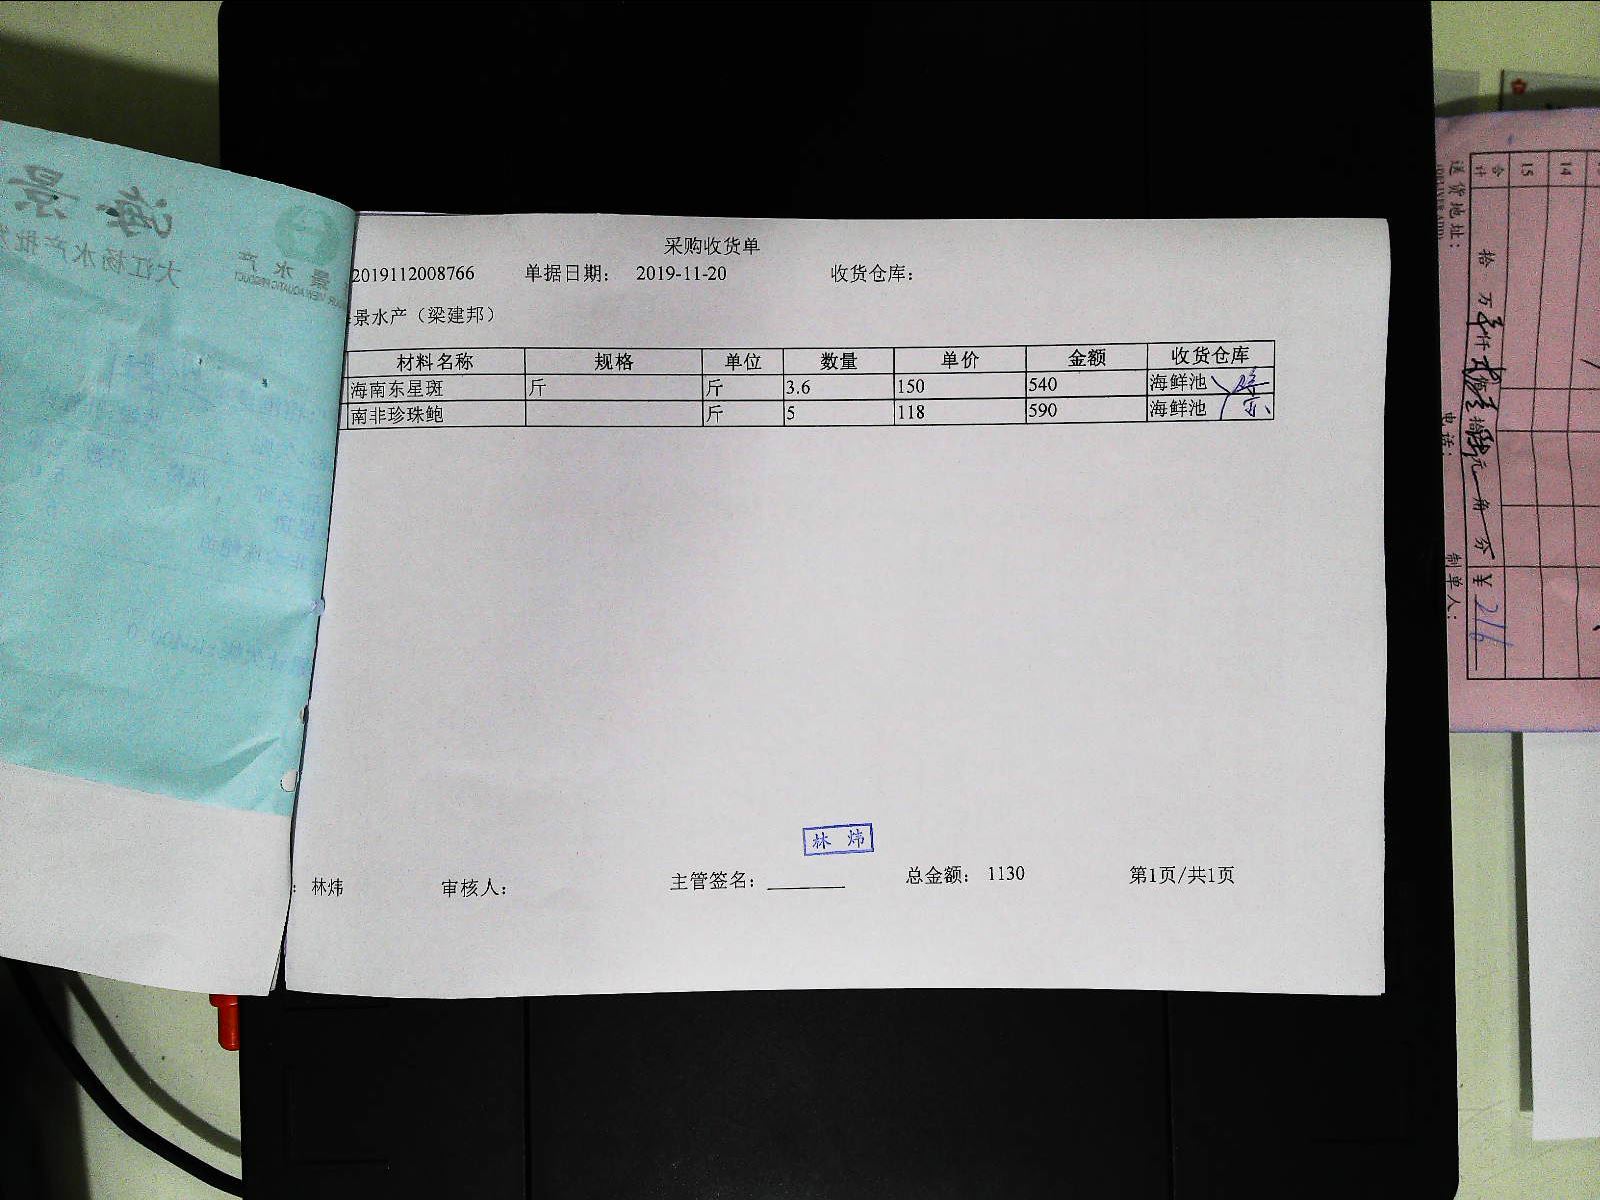 采购收货单
2019112008766 单据日期： 2019-11-20 收货仓库：
景水产（梁建邦）
材料名称 规格 单位 数量 单价 金额 收货仓库
海南东星斑 斤 斤 3.6 150 540 海鲜池
南非珍珠鲍 斤 5 118 590 海鲜池
林 炜
：林炜 审核人： 主管签名： 总金额： 1130 第1页/共1页
海景
景水产
大江杨水产批
14
15
合计
拾 万 仟 佰 拾 元 角 分 ￥ 216
送货地址： 电话： 制单人：